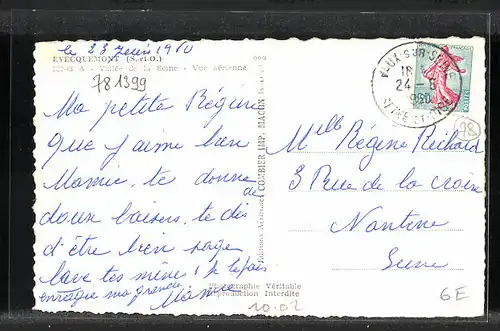 le 23 Juin 1960
EVECQUEMONT (S.-et-O.)
A - Vallée de la Seine - Vue aérienne
781399
Ma petite Régine
Que j'aime bien
Mamie te donne
de
doux baisers, te dis
d'être bien sage
lave tes mains !
ma grande
Mamie
COMBIER IMP. MACON
Photographie Véritable
Reproduction Interdite
VAUX-SUR-SEINE
18
24 - 6
1960
SEINE-ET-OISE
POSTES
78
Melle Régine Richard
3 Rue de la croix
Nanterre
Seine
10.02
6E